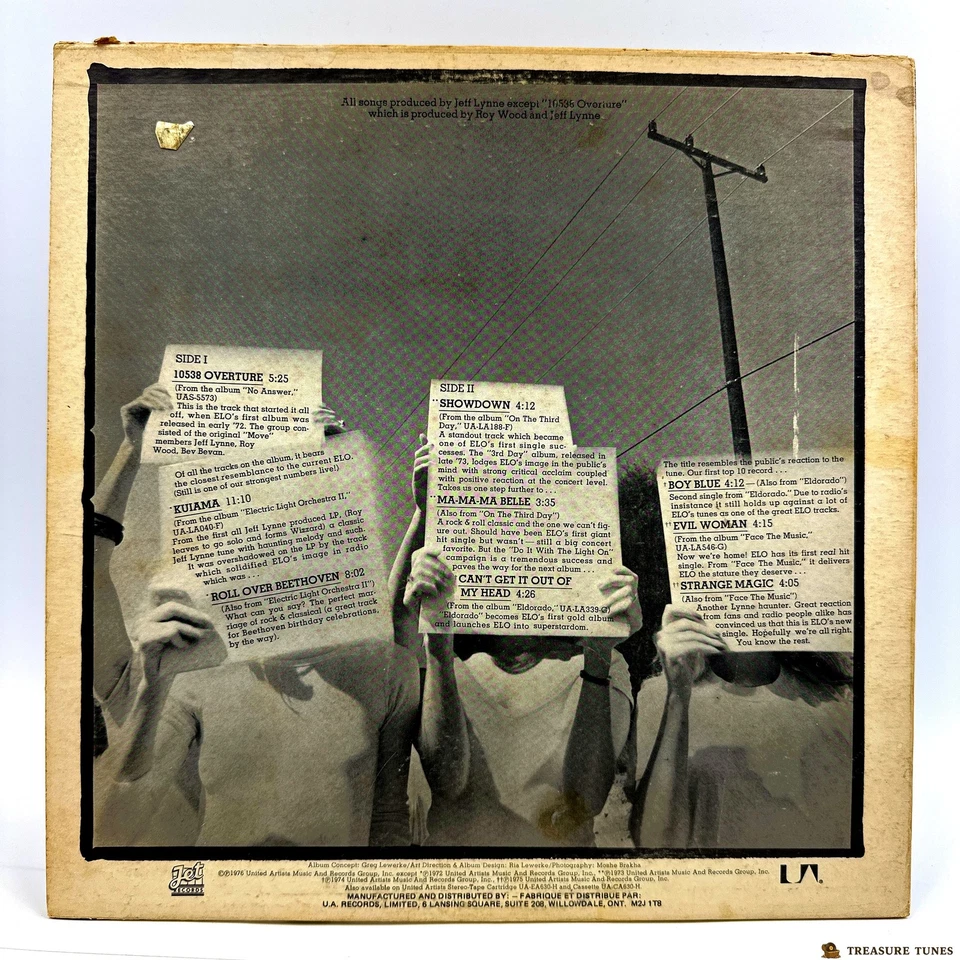 All songs produced by Jeff Lynne except "10538 Overture"
which is produced by Roy Wood and Jeff Lynne
SIDE I
10538 OVERTURE 5:25
(From the album "No Answer,"
UAS-5573)
This is the track that started it all
off, when ELO's first album was
released in early '72. The group con-
sisted of the original "Move"
members Jeff Lynne, Roy
Wood, Bev Bevan.
Of all the tracks on the album, it bears
the closest resemblance to the current ELO.
(Still is one of our strongest numbers live!)
KUIAMA 11:10
(From the album "Electric Light Orchestra II,"
UA-LA040-F)
From the first all Jeff Lynne produced LP, (Roy
leaves to go solo and forms Wizzard) a classic
Jeff Lynne tune with haunting melody and such.
It was overshadowed on the LP by the track
which solidified ELO's image in radio
which was ...
*ROLL OVER BEETHOVEN 8:02
(Also from "Electric Light Orchestra II")
What can you say? The perfect mar-
riage of rock & classical (a great track
for Beethoven birthday celebrations,
by the way).
SIDE II
**SHOWDOWN 4:12
(From the album "On The Third
Day," UA-LA188-F)
A standout track which became
one of ELO's first single suc-
cesses. The "3rd Day" album, released in
late '73, lodges ELO's image in the public's
mind with strong critical acclaim coupled
with positive reaction at the concert level.
Takes us one step further to ...
**MA-MA-MA BELLE 3:35
(Also from "On The Third Day")
A rock & roll classic and the one we can't fig-
ure out. Should have been ELO's first giant
hit single but wasn't — still a big concert
favorite. But the "Do It With The Light On"
campaign is a tremendous success and
paves the way for the next album ...
CAN'T GET IT OUT OF
MY HEAD 4:26
(From the album "Eldorado," UA-LA339-G)
"Eldorado" becomes ELO's first gold album
and launches ELO into superstardom.
The title resembles the public's reaction to the
tune. Our first top 10 record ...
†BOY BLUE 4:12 — (Also from "Eldorado")
Second single from "Eldorado." Due to radio's
insistance it still holds up against a lot of
ELO's tunes as one of the great ELO tracks.
††EVIL WOMAN 4:15
(From the album "Face The Music,"
UA-LA546-G)
Now we're home! ELO has its first real hit
single. From "Face The Music," it delivers
ELO the stature they deserve ...
††STRANGE MAGIC 4:05
(Also from "Face The Music")
Another Lynne haunter. Great reaction
from fans and radio people alike has
convinced us that this is ELO's new
single. Hopefully we're all right.
You know the rest.
Jet
RECORDS
Album Concept: Greg Lewerke/Art Direction & Album Design: Ria Lewerke/Photography: Moshe Brakha
©℗1976 United Artists Music And Records Group, Inc. except *℗1972 United Artists Music And Records Group, Inc., **℗1973 United Artists Music And Records Group, Inc.
†℗1974 United Artists Music And Records Group, Inc., ††℗1975 United Artists Music And Records Group, Inc.
Also available on United Artists Stereo-Tape Cartridge UA-EA630-H and Cassette UA-CA630-H.
MANUFACTURED AND DISTRIBUTED BY: – FABRIQUE ET DISTRIBUE PAR:
U.A. RECORDS, LIMITED, 6 LANSING SQUARE, SUITE 208, WILLOWDALE, ONT. M2J 1T8
UA®
TREASURE TUNES